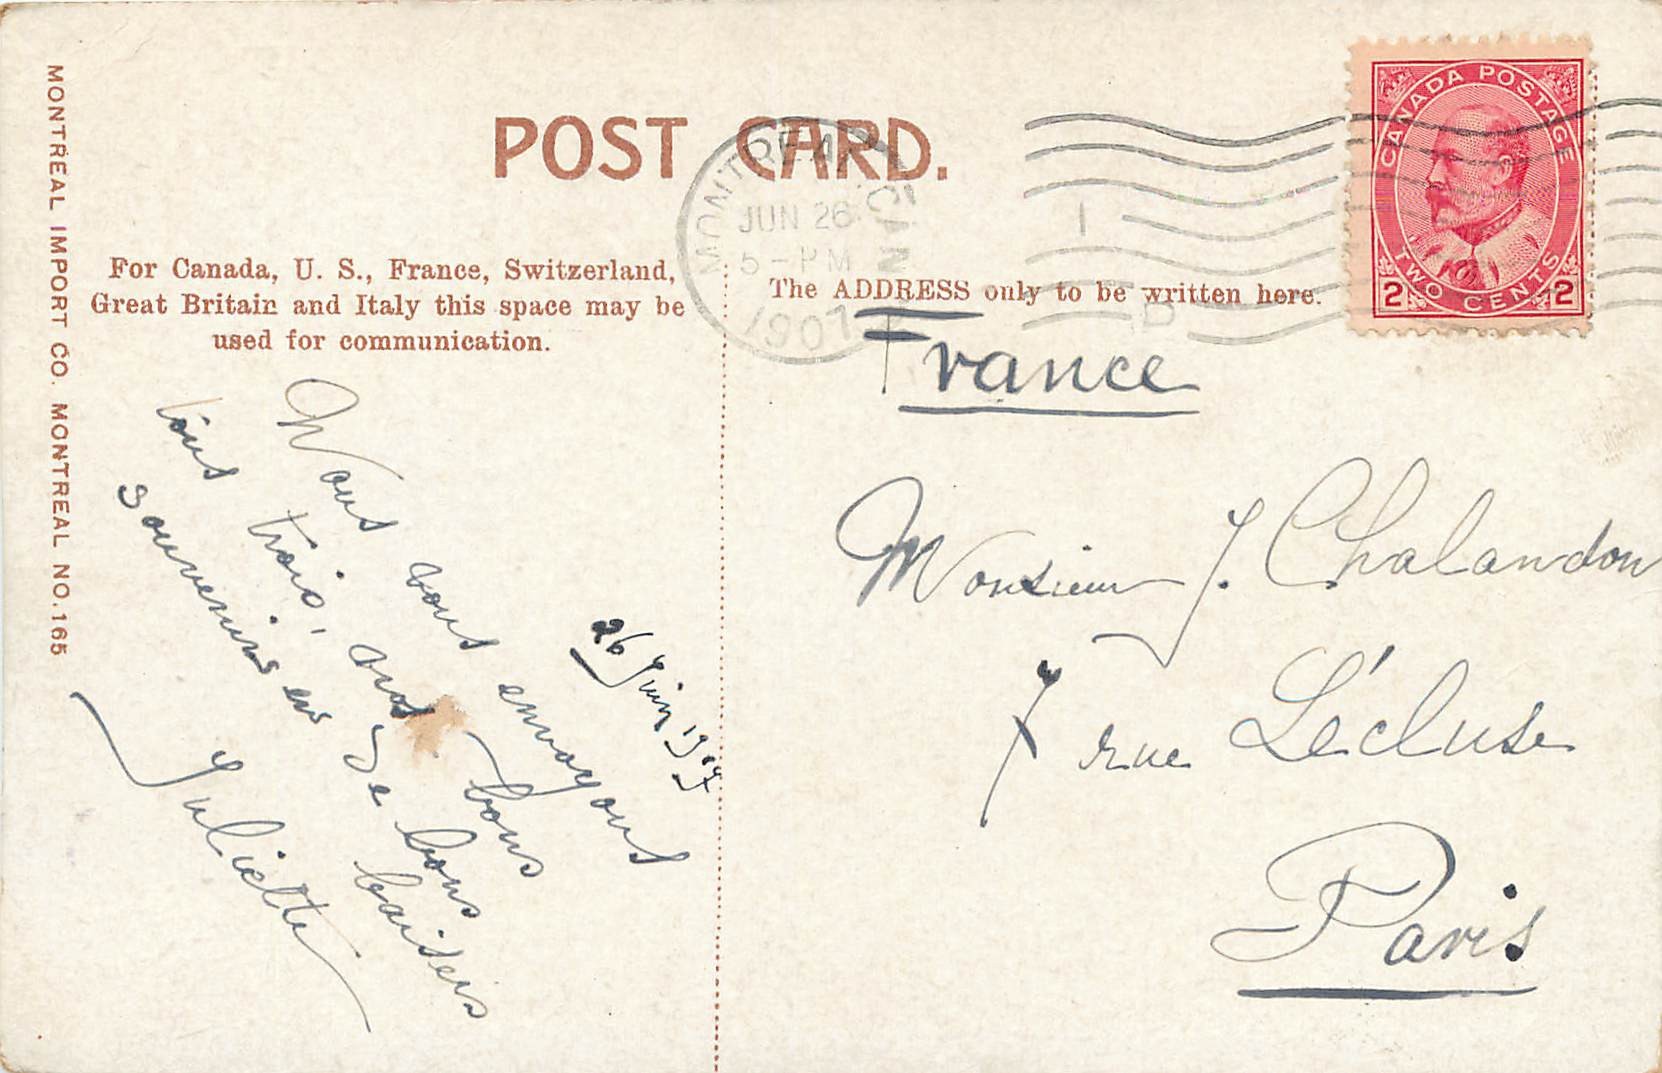 MONTREAL IMPORT CO. MONTREAL NO. 165
POST CARD.
For Canada, U. S., France, Switzerland,
Great Britain and Italy this space may be
used for communication.
The ADDRESS only to be written here.
MONTREAL CAN
JUN 26
5-PM
1907
1
D
CANADA POSTAGE
TWO CENTS
2 2
26 Juin 1907
Nous vous envoyons
tous trois, nos bons
souvenirs et de bons
baisers
Juliette
France
Monsieur J. Chalandon
7 rue Lécluse
Paris